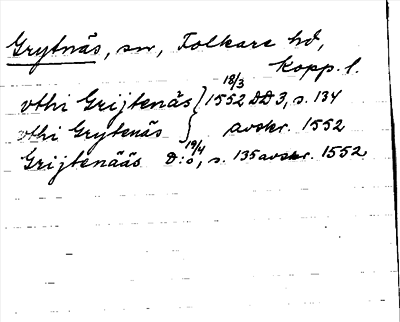 Grytnäs, sn, Folkare hd,
Kopp. l.
vthi Grijtenäs } 18/3 1552 DD 3, s. 134
vthi Grytenäs } avskr. 1552
Grijtenääs D:o 19/4, s. 135 avskr. 1552